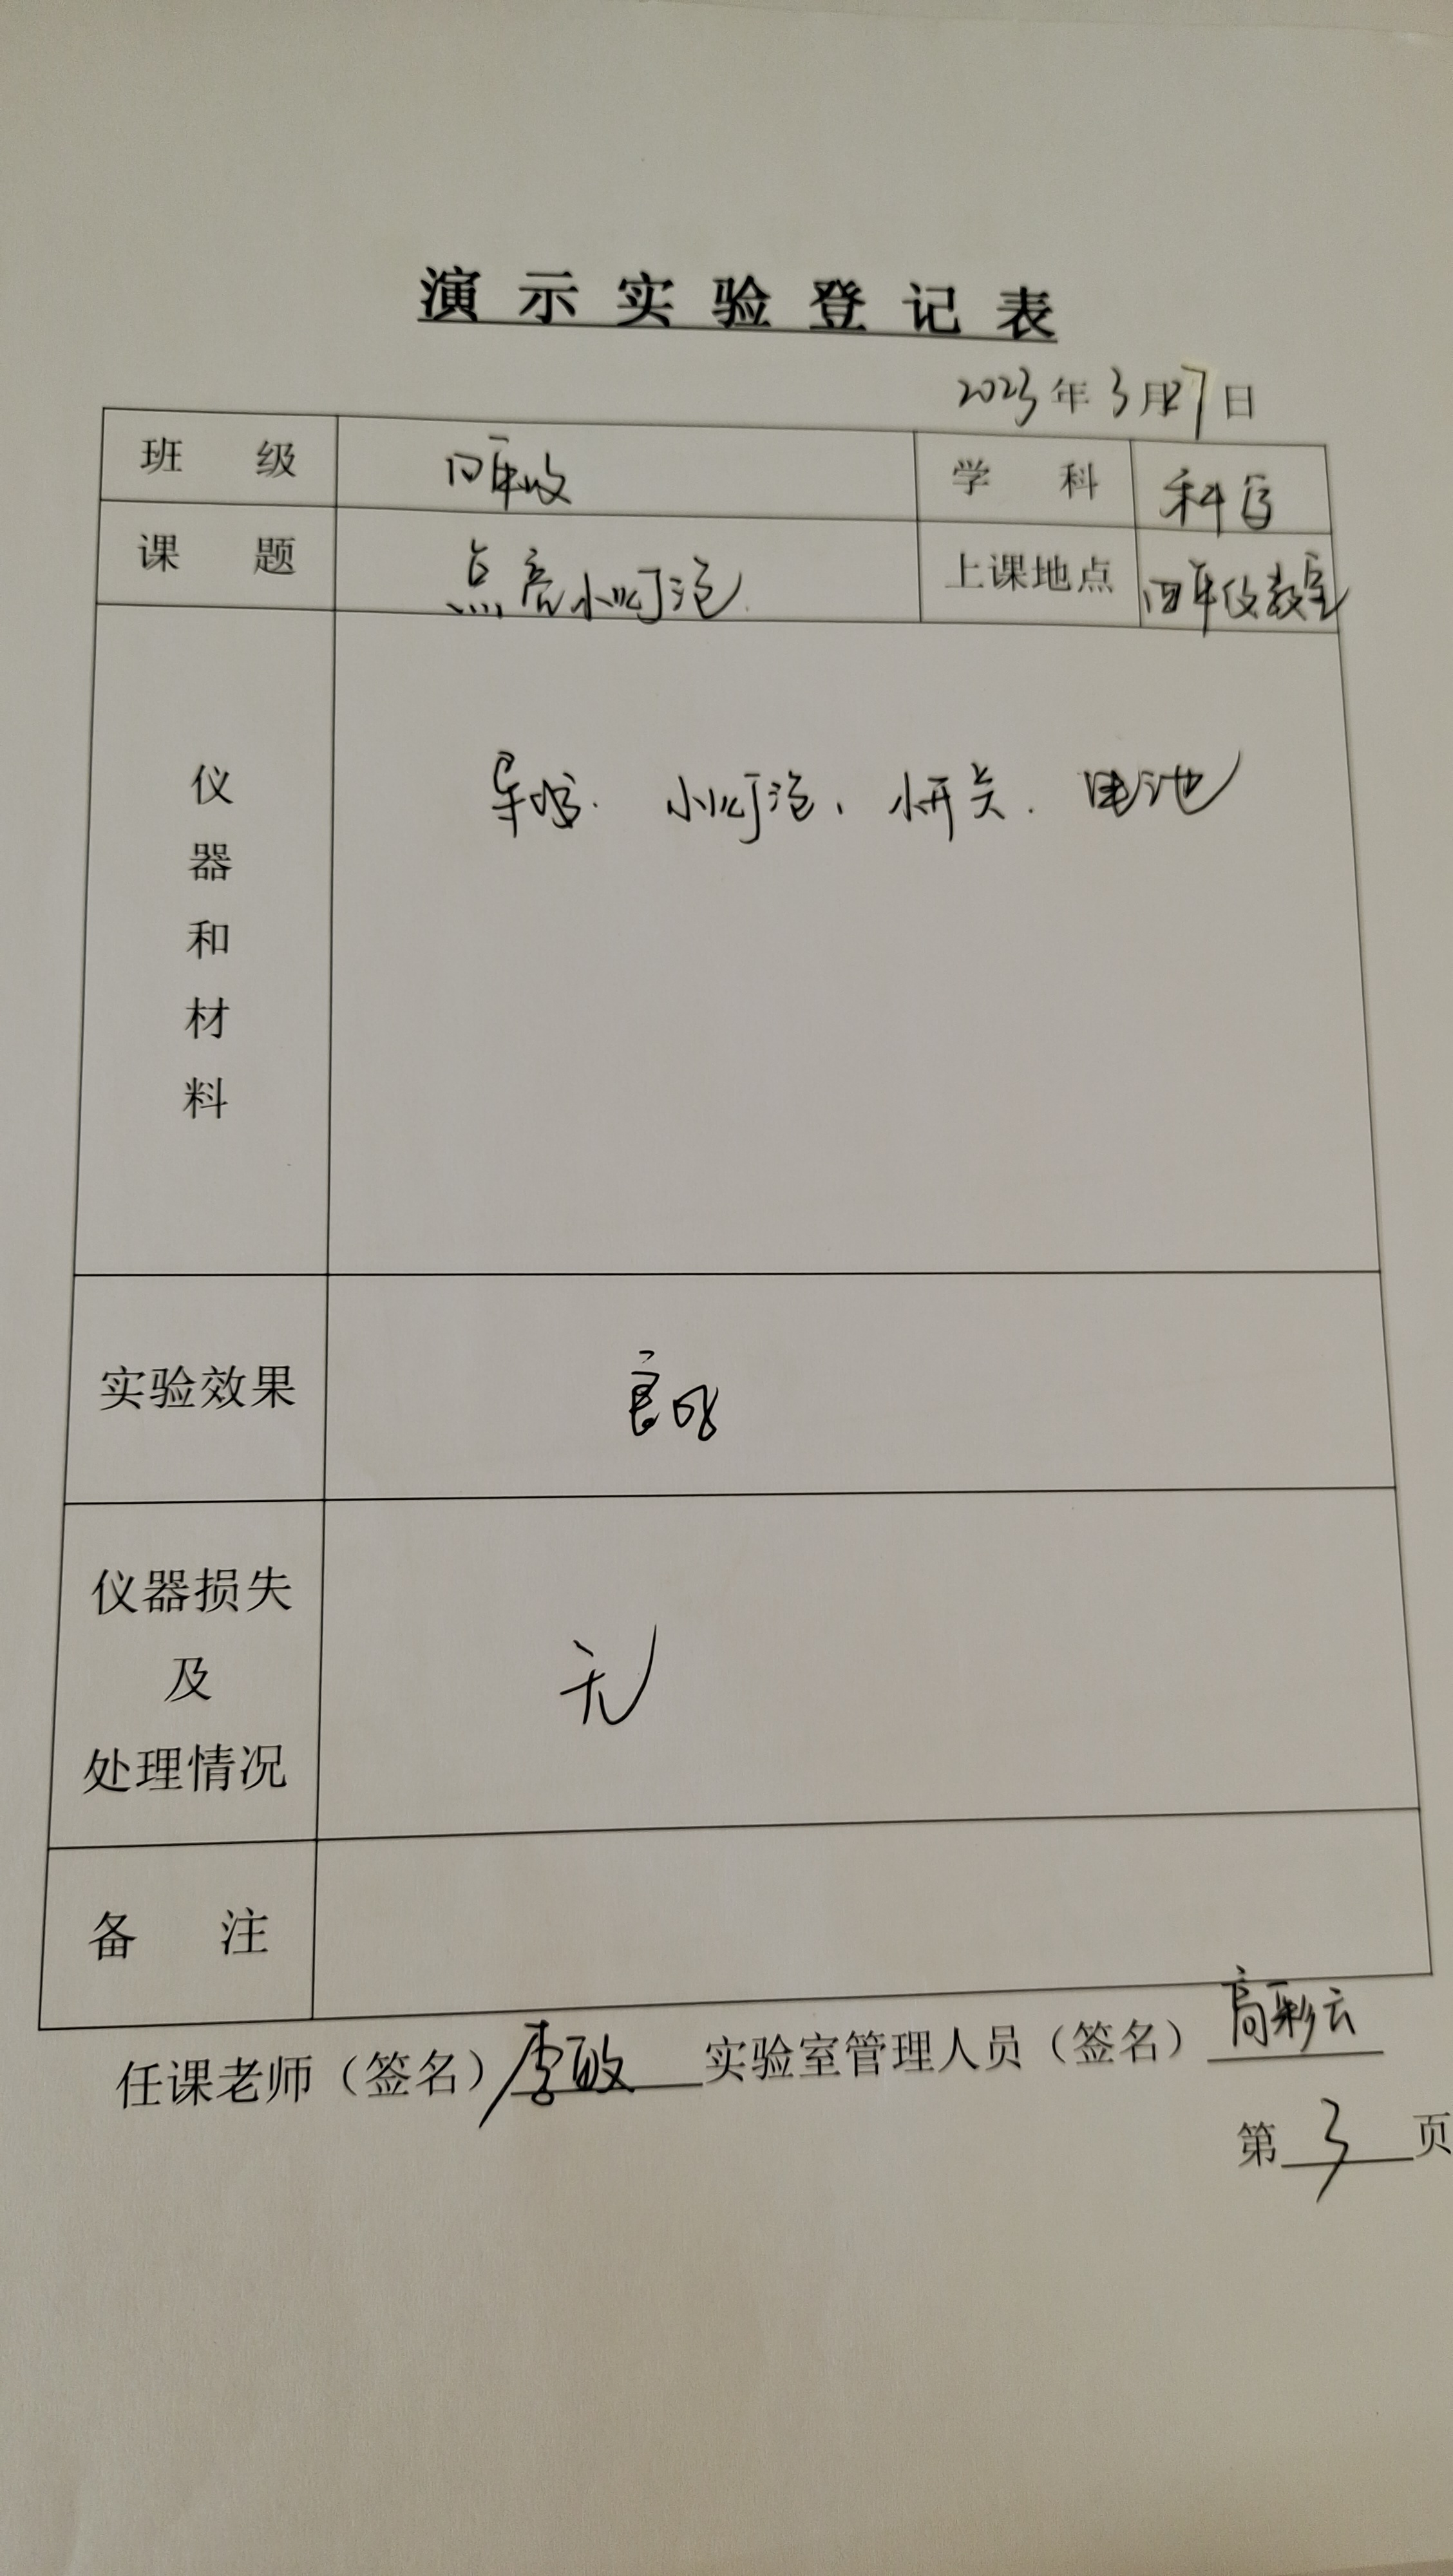 演示实验登记表
2023年3月27日
班 级 四年级 学 科 科学
课 题 点亮小灯泡 上课地点 四年级教室
仪器和材料 导线、小灯泡、小开关、电池
实验效果 良好
仪器损失
及
处理情况
无
备 注
任课老师（签名）李敏 实验室管理人员（签名）高彩云
第3页